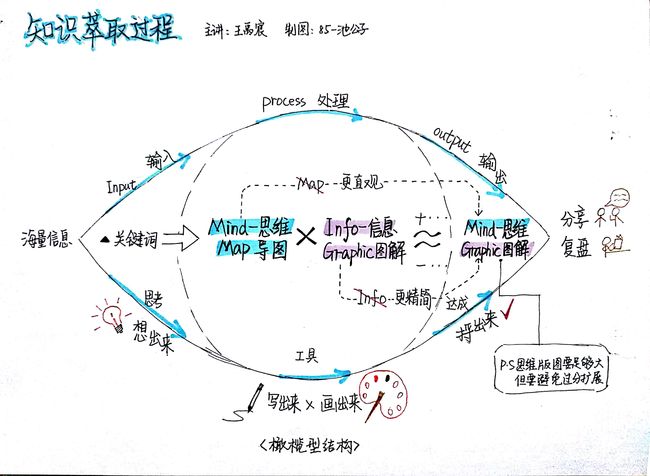 知识萃取过程
主讲:王高宸 制图:85-池公子
process 处理
Input 输入
output 输出
Map 更直观
海量信息
▲关键词
Mind-思维
Map导图
×
Info-信息
Graphic图解
+···
≈
-···
Mind-思维
Graphic图解
分享
复盘
Info 更精简
思考
想出来
达成
捋出来
工具
写出来×画出来
P·S思维版图要足够大
但要避免过分扩展
<橄榄型结构>